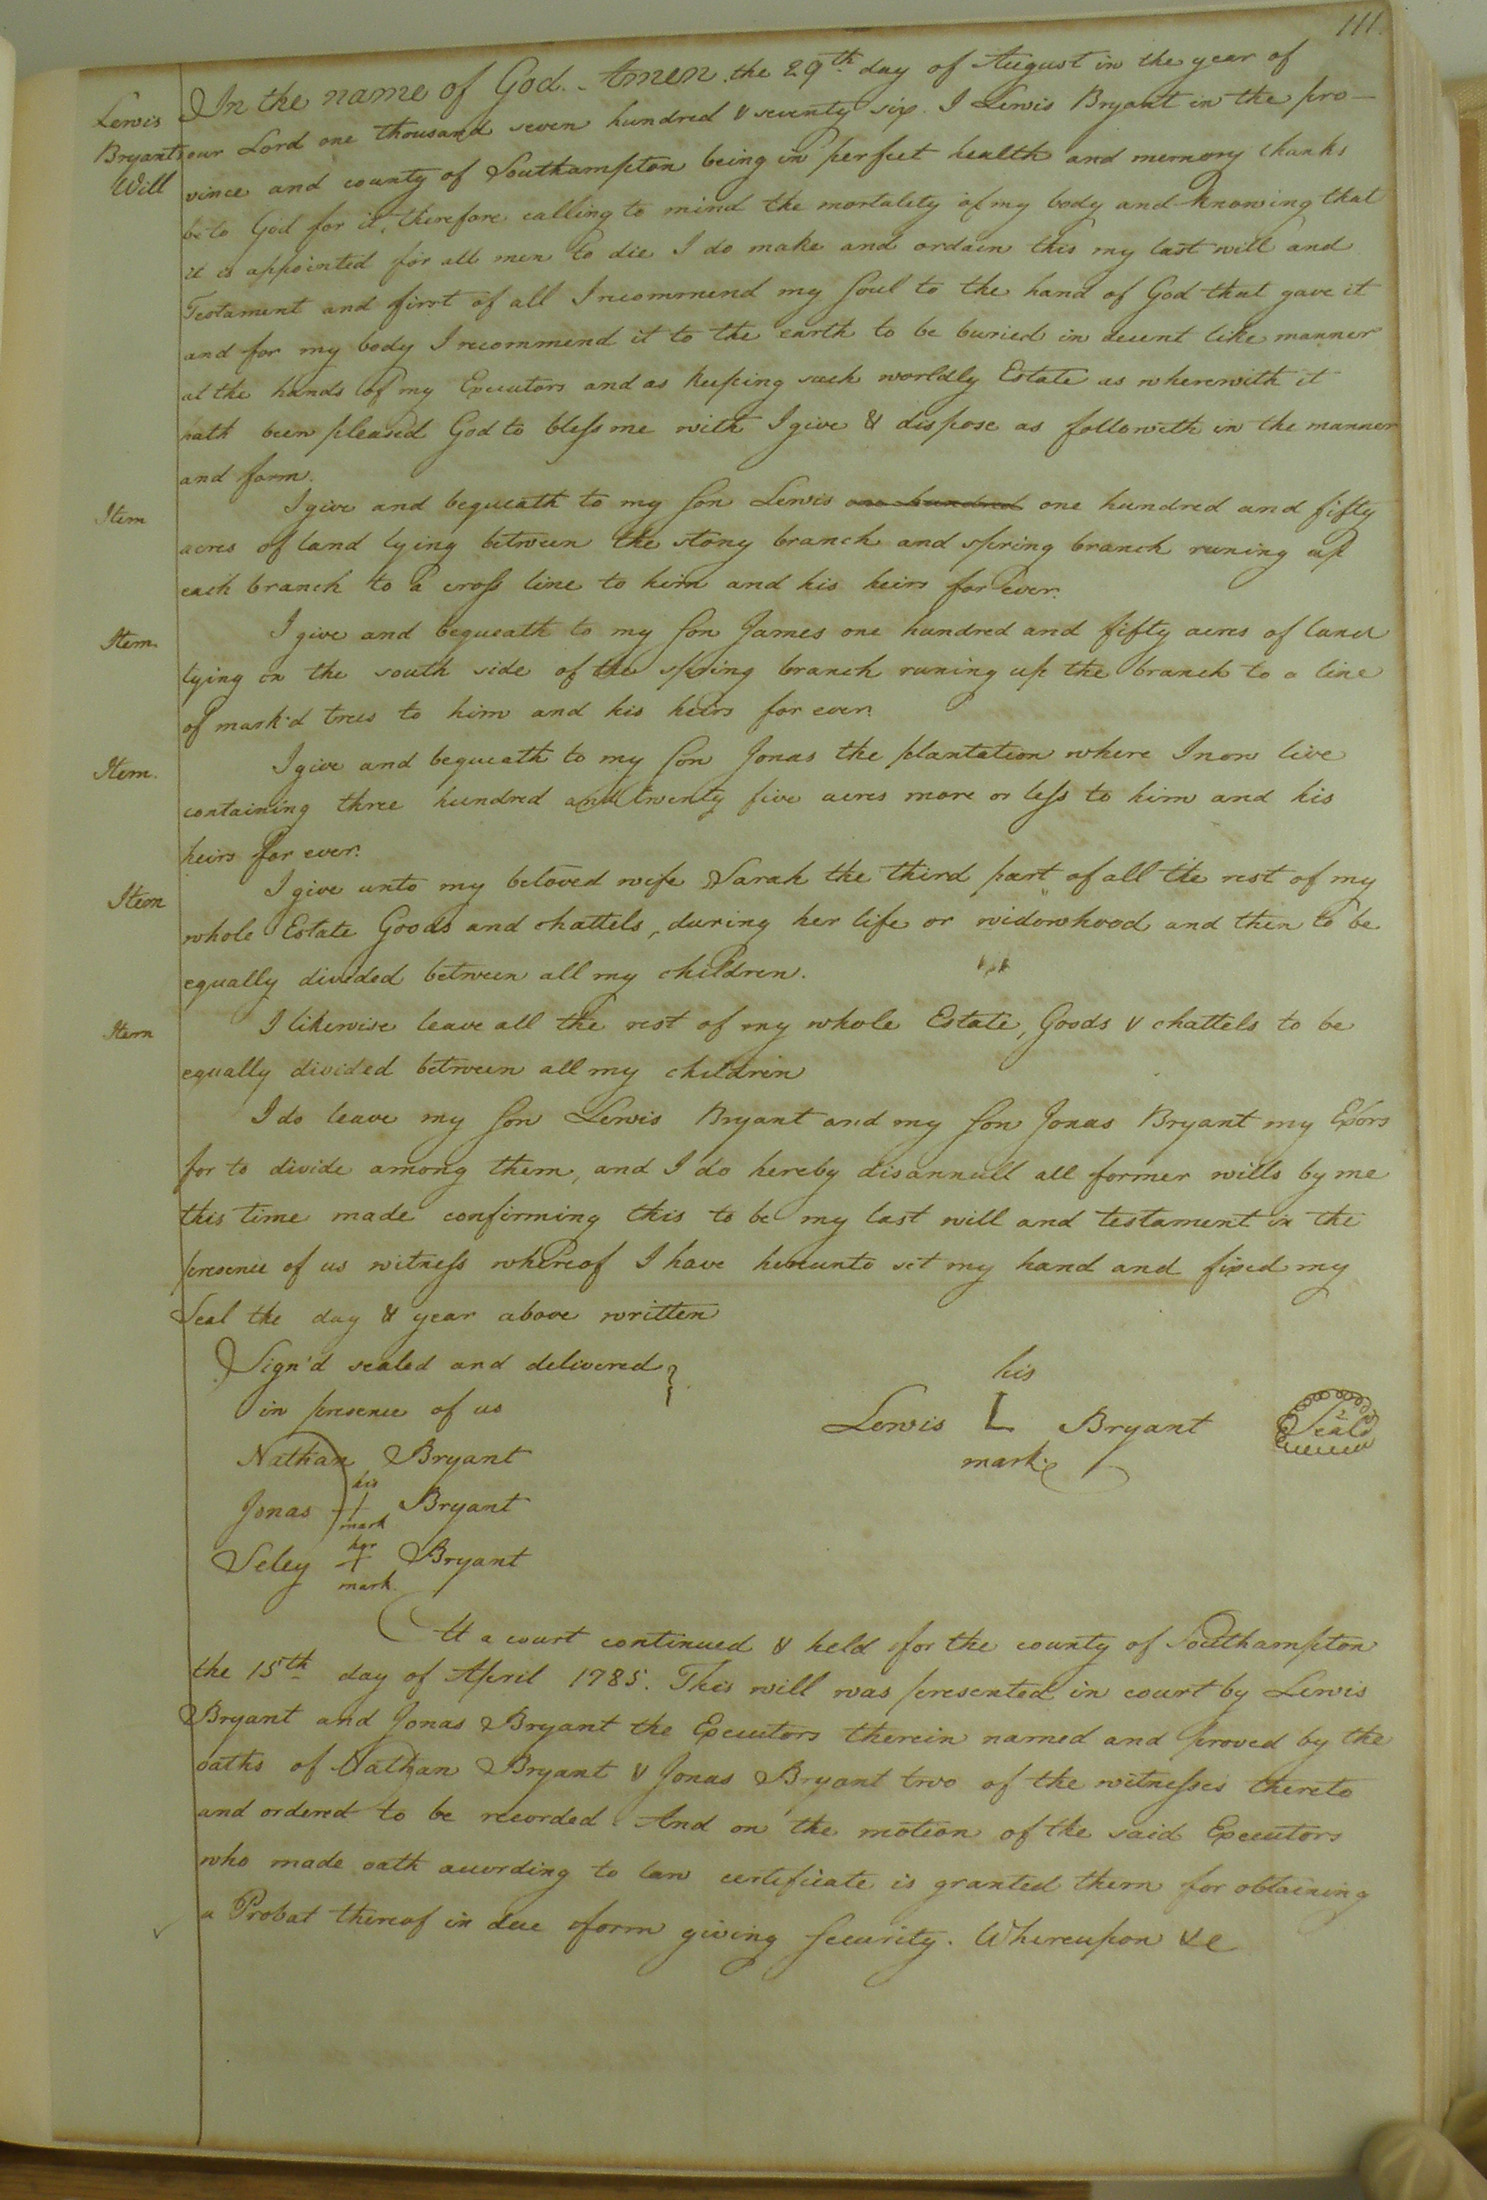 111.
Lewis
Bryants
Will
In the name of God. Amen. the 29th day of August in the year of
our Lord one thousand seven hundred & seventy six. I Lewis Bryant in the pro-
vince and county of Southampton being in perfect health and memory thanks
be to God for it, therefore calling to mind the mortality of my body and knowing that
it is appointed for all men to die I do make and ordain this my last will and
Testament and first of all I recommend my Soul to the hand of God that gave it
and for my body I recommend it to the earth to be buried in decent like manner
at the hands of my Executors and as keeping such worldly Estate as wherewith it
hath been pleased God to bless me with I give & dispose as followeth in the manner
and form.
Item I give and bequeath to my Son Lewis one hundred one hundred and fifty
acres of land lying between the stony branch and spring branch runing up
each branch to a cross line to him and his heirs for ever.
Item. I give and bequeath to my Son James one hundred and fifty acres of land
lying on the south side of the spring branch runing up the branch to a line
of mark'd trees to him and his heirs for ever.
Item. I give and bequeath to my Son Jonas the plantation where I now live
containing three hundred and twenty five acres more or less to him and his
heirs for ever.
Item I give unto my beloved wife Sarah the third part of all the rest of my
whole Estate Goods and chattels, during her life or widowhood and then to be
equally divided between all my children.
Item I likewise leave all the rest of my whole Estate, Goods & chattels to be
equally divided between all my children
I do leave my Son Lewis Bryant and my Son Jonas Bryant my Exors
for to divide among them, and I do hereby disannull all former wills by me
this time made confirming this to be my last will and testament in the
presence of us witness whereof I have hereunto set my hand and fixed my
Seal the day & year above written
Sign'd sealed and delivered
in presence of us
his
Lewis L Bryant Seal
mark
Nathan Bryant
his
Jonas + Bryant
mark
her
Seley + Bryant
mark.
At a court continued & held for the county of Southampton
the 15th day of April 1785. This will was presented in court by Lewis
Bryant and Jonas Bryant the Executors therein named and proved by the
oaths of Nathan Bryant & Jonas Bryant two of the witnesses thereto
and ordered to be recorded. And on the motion of the said Executors
who made oath according to law certificate is granted them for obtaining
a Probat thereof in due form giving Security. Whereupon &c